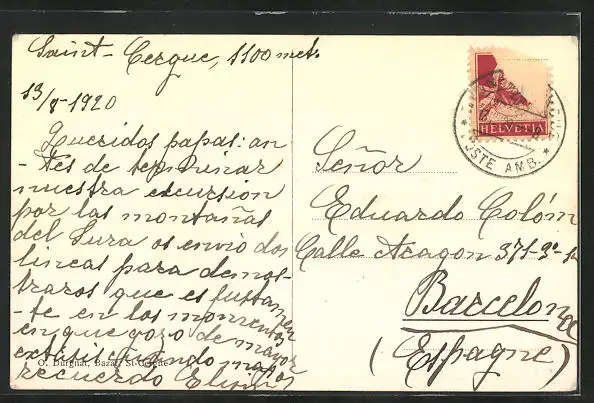 Saint-Cergue, 1100 mets
13/8-1920
Queridos papas: an
-tes de terminar
nuestra excursion
por las montañas
del Jura os envio dos
lineas para demos-
traros que es justamen
-te en los momentos
en que gozo de mayor
extasis cuando mas
recuerdo
O. Burghat, Bazar, St-Cergue
HELVETIA
POSTE AMB.
Señor
Eduardo Colóm
Calle Aragon 375-3º-1a
Barcelona
(Espagne)